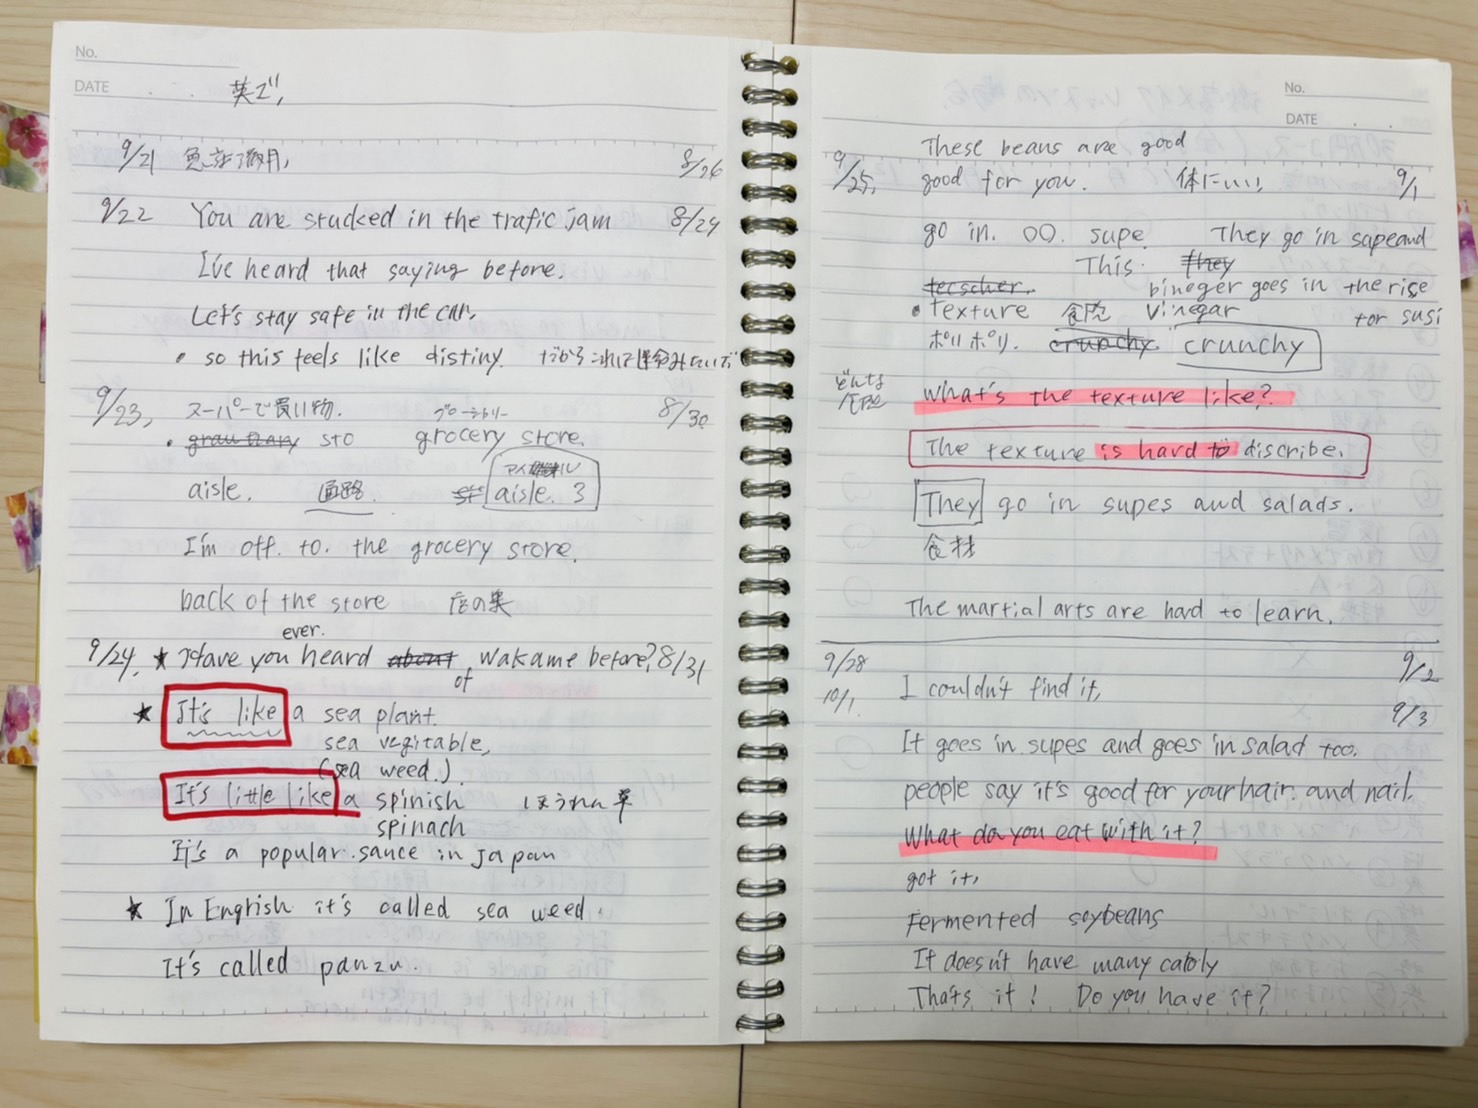 No.
DATE
英ご,
9/21 8/26
9/22 You are studked in the trafic jam 8/29
I've heard that saying before.
Let's stay safe in the car.
• so this feels like distiny.
9/23, スーパーで買い物. 8/30
グローサリー
• sto grocery store.
aisle. 通路. aisle. 3
I'm off. to. the grocery store.
back of the store 店の奥
ever.
9/24, ★ Have you heard about, wakame before? 8/31
of
★ It's like a sea plant.
sea vegitable,
(sea weed.)
It's little like a spinish ほうれん草
spinach
It's a popular. sauce in Japan
★ In Engrish it's called sea weed.
It's called panzu.
No.
DATE
These beans are good
9/25, good for you. 体にいい, 9/1
go in. 〇〇. supe. They go in sapeand
This. they
bineger goes in the rise
• Texture 食感 vinegar for susi
ポリポリ. crunchy crunchy
どんな
食感
What's the texture like?
The texture is hard to discribe.
They go in supes and salads.
食材
The martial arts are hard to learn.
9/28 9/2
10/1. I couldn't find it,
9/3
It goes in supes and goes in salad too.
people say it's good for your hair. and nail.
What do you eat with it?
got it,
Fermented soybeans
It doesn't have many caloly
That's it! Do you have it?